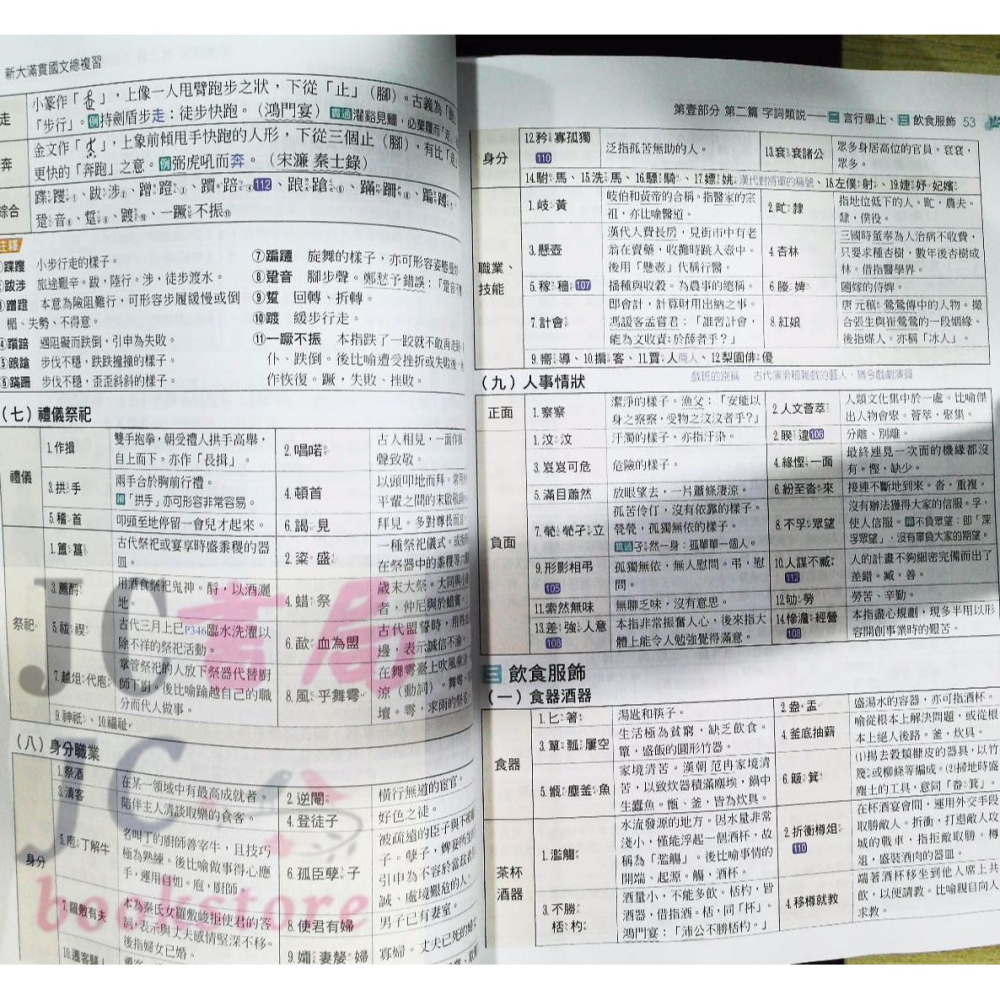 新大滿貫國文總複習
走
小篆作「 」，上像一人甩臂跑步之狀，下從「止」（腳）。古義為「跑」
「步行」。例持劍盾步走：徒步快跑。（鴻門宴）
奔
金文作「 」，上象前傾甩手快跑的人形，下從三個止（腳），有比「走」
更快的「奔跑」之意。例弼虎吼而奔。（宋濂 秦士錄）
綜合
跫音、踅、踱、一蹶不振
注釋
小步行走的樣子。
跋涉 旅途艱辛。跋，陸行。涉，徒步渡水。
蹭蹬 本意為險阻難行，可形容步履緩慢或困
頓、失勢、不得意。
遇阻礙而跌倒，引申為失敗。
步伐不穩，跌跌撞撞的樣子。
蹣跚 步伐不穩，歪歪斜斜的樣子。
旋舞的樣子，亦可形容姿態
⑧跫音 腳步聲。鄭愁予錯誤：「跫音不
⑨踅 回轉、折轉。
⑩踱 緩步行走。
⑪一蹶不振 本指跌了一跤就不敢再走路
仆、跌倒。後比喻遭受挫折或失敗後
作恢復。蹶，失敗、挫敗。
（七）禮儀祭祀
禮儀
1.作揖
雙手抱拳，朝受禮人拱手高舉，
自上而下。亦作「長揖」。
2.唱喏
古人相見，一面作揖
聲致敬。
3.拱手
兩手合於胸前行禮。
「拱手」亦可形容非常容易。
4.頓首
以頭叩地而拜。常用
平輩之間的末啟敬詞
5.稽首
叩頭至地停留一會兒才起來。
6.謁見
拜見。多對尊長而言
祭祀
1.簠簋
古代祭祀或宴享時盛黍稷的器
皿。
2.粢盛
一種祭祀儀式。
在祭器中的黍稷等
3.薦酹
用酒食祭祀鬼神。酹，以酒灑
地。
4.蜡祭
歲末大祭。大同與小康
者，仲尼與於蜡賓
5.祓禊
古代三月上巳P346臨水洗濯以
除不祥的祭祀活動。
6.歃血為盟
古代盟誓時，用牲血
邊，表示誠信不渝。
7.越俎代庖
掌管祭祀的人放下祭器代替廚
師下廚。後比喻踰越自己的職
分而代人做事。
8.風乎舞雩
在舞雩臺上吹風乘涼
涼（動詞）。舞雩
壇。雩，求雨的祭名
9.神祇、10.禨祉。
（八）身分職業
身分
1.祭酒
在某一領域中有最高成就者。
2.逆閹
橫行無道的宦官。
3.清客
陪伴主人清談取樂的食客。
4.登徒子
好色之徒。
5.庖丁解牛
名叫丁的廚師善宰牛，且技巧
極為熟練。後比喻做事得心應
手，運用自如。庖，廚師。
6.孤臣孽子
被疏遠的臣子與不
子。孽子，
引申為不容於當政者
誠、處境艱危的人。
7.羅敷有夫
本為秦氏女羅敷峻拒使君的答
覆，表示與丈夫感情堅深不移。
後指婦女已婚。
8.使君有婦
男子已有妻室。
9.孀妻嫠婦
寡婦。丈夫已死的
第壹部分 第二篇 字詞類說——二 言行舉止、三 飲食服飾 53
身分
12.矜寡孤獨
110
泛指孤苦無助的人。
13.袞袞諸公
眾多身居高位的官員。袞袞，
眾多。
14.駙馬、15.洗馬、16.驃騎、17.嫖姚漢代對將軍的稱號、18.左僕射、19.婕妤妃嬪
職業、
技能
1.岐黃
岐伯和黃帝的合稱。指醫家的宗
祖，亦比喻醫道。
2.甿隸
指地位低下的人。甿，農夫。
隸，僕役。
3.懸壺
漢代人費長房，見街市中有老
翁在賣藥，收攤時跳入壺中。
後用「懸壺」代稱行醫。
4.杏林
三國時董奉為人治病不收費，
只要求種杏樹，數年後杏樹成
林。借指醫學界。
5.稼穡107
播種與收穀。為農事的總稱。
6.媵婢
隨嫁的侍婢。
7.計會
即會計，計算財用出納之事。
馮諼客孟嘗君：「誰習計會，
能為文收責於薛者乎？」
8.紅娘
唐 元稹 鶯鶯傳中的人物。撮
合張生與崔鶯鶯的一段姻緣。
後指媒人。亦稱「冰人」。
9.嚮導、10.掮客、11.賈人商人、12.梨園俳優
戲班的別稱 古代演滑稽雜戲的藝人，猶今戲劇演員
（九）人事情狀
正面
1.察察
潔淨的樣子。漁父：「安能以
身之察察，受物之汶汶者乎？」
2.人文薈萃
人類文化集中於一處。比喻傑
出人物會聚。薈萃，聚集。
負面
1.汶汶
汙濁的樣子，亦指汙染。
2.睽違106
分離、別離。
3.岌岌可危
危險的樣子。
4.緣慳一面
最終連見一次面的機緣都沒
有。慳，缺少。
5.滿目蕭然
放眼望去，一片蕭條淒涼。
6.紛至沓來
接連不斷地到來。沓，重複。
7.煢煢孑立
孤苦伶仃，沒有依靠的樣子。
煢煢，孤獨無依的樣子。
孑然一身：孤單單一個人。
8.不孚眾望
沒有辦法獲得大家的信服。孚，
使人信服。不負眾望：即「深
孚眾望」，沒有辜負大家的期望。
9.形影相弔
105
孤獨無依，無人慰問。弔，慰
問。
10.人謀不臧
112
人的計畫不夠細密完備而出了
差錯。臧，善。
11.索然無味
無聊乏味，沒有意思。
12.劬勞
勞苦、辛勤。
13.差強人意
108
本指非常振奮人心，後來指大
體上能令人勉強覺得滿意。
14.慘澹經營
108
本指盡心規劃，現多半用以形
容開創事業時的艱苦。
三 飲食服飾
（一）食器酒器
食器
1.匕箸
湯匙和筷子。
2.盎盂
盛湯水的容器，亦可指酒杯。
3.簞瓢屢空
生活極為貧窮，缺乏飲食。
簞，盛飯的圓形竹器。
4.釜底抽薪
喻從根本上解決問題，或從根
本上絕人後路。釜，炊具。
5.甑塵釜魚
家境清苦。漢朝范冉家境清
苦，以致炊器積滿塵埃，鍋中
生蠹魚。甑、釜，皆為炊具。
6.簸箕
(1)揚去穀類糠皮的器具，以竹
篾或柳條等編成。(2)掃地時盛
塵土的工具，意同「畚箕」。
茶杯
酒器
1.濫觴
水流發源的地方。因水量非常
淺小，僅能浮起一個酒杯，故
稱為「濫觴」。後比喻事情的
開端、起源。觴，酒杯。
2.折衝樽俎
110
在杯酒宴會間，運用外交手段
取勝敵人。折衝，打退敵人攻
城的戰車，指拒敵取勝。樽
俎，盛裝酒肉的器皿。
3.不勝
桮杓
酒量小，不能多飲。桮杓，皆
酒器，借指酒。桮，同「杯」。
鴻門宴：「沛公不勝桮杓。」
4.移樽就教
端著酒杯移坐到他人席上共
飲，以便請教。比喻親自向人
求教。
JC書局
JC
bookstore